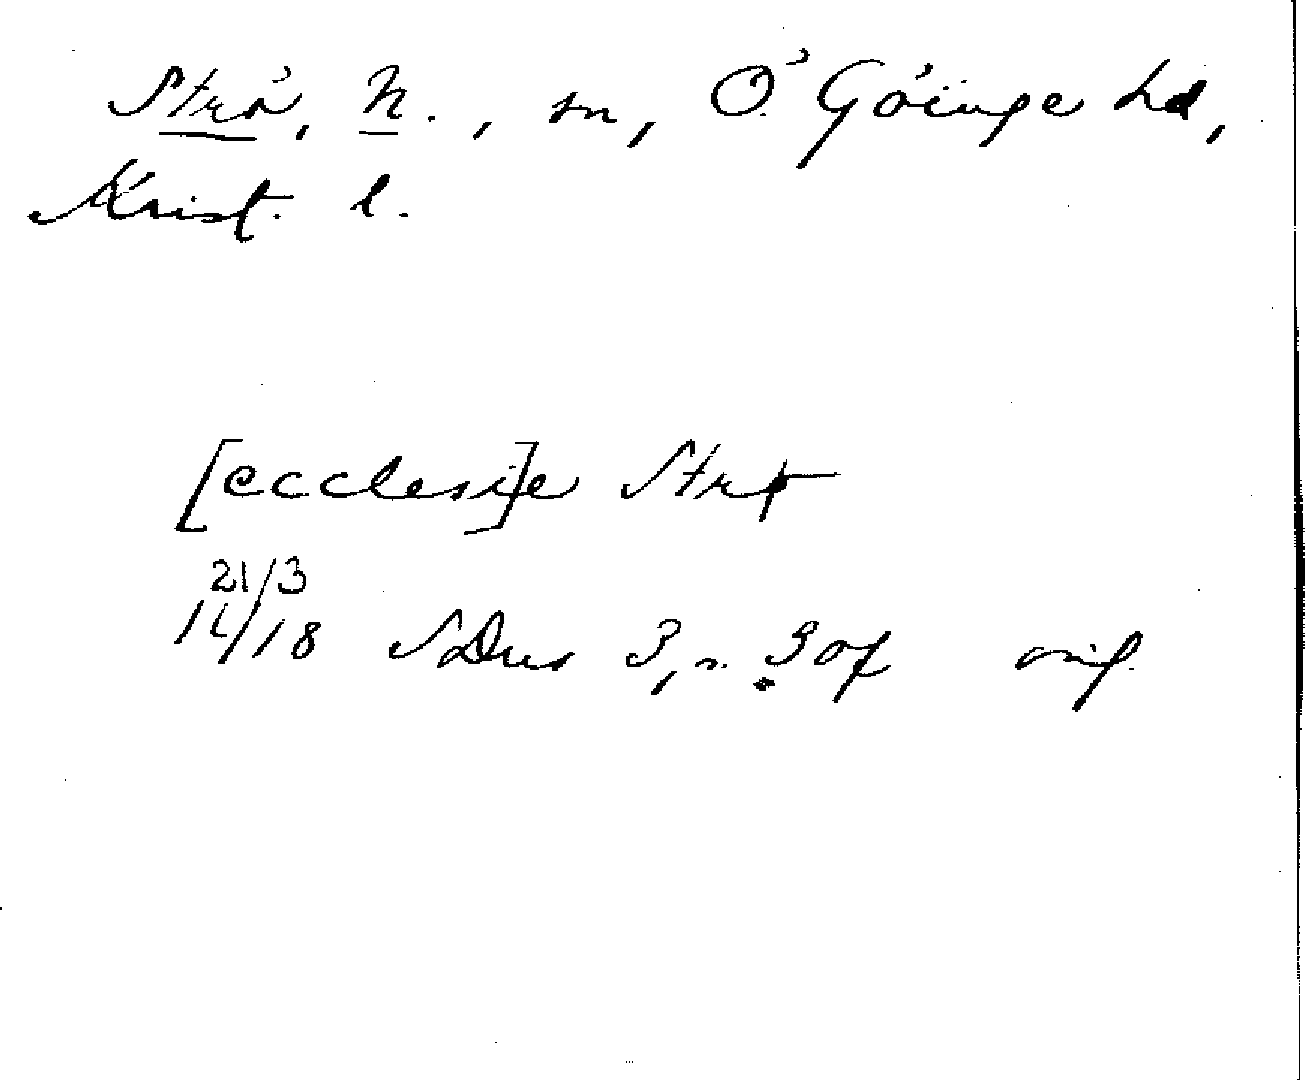 Strö, N., sn, Ö Göinge hd,
Krist. l.
[ecclesi]e Strø
21/3
14/18 SDns 3, s. 307 orig.